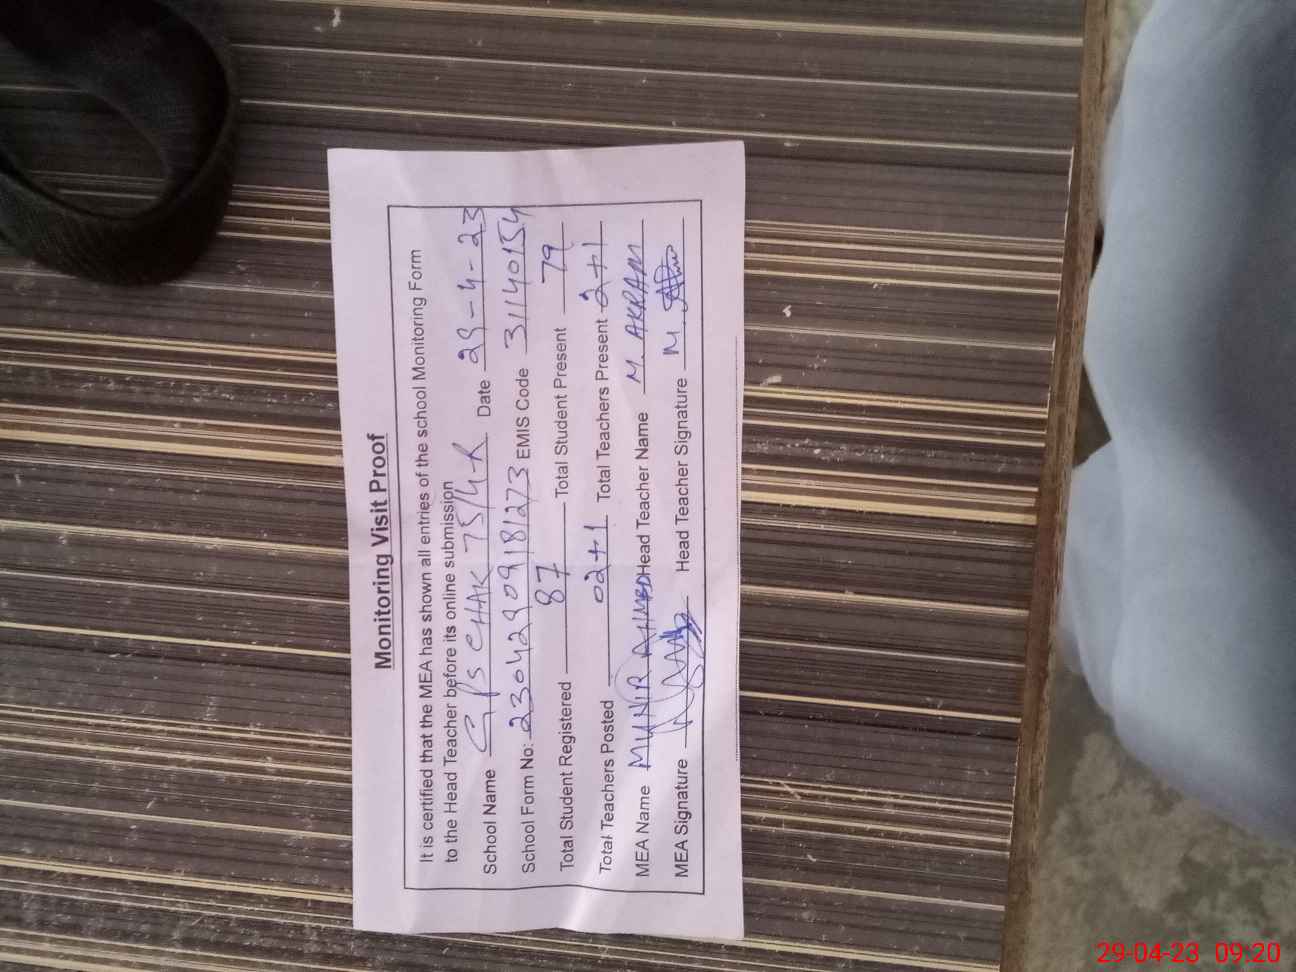 Monitoring Visit Proof
It is certified that the MEA has shown all entries of the school Monitoring Form
to the Head Teacher before its online submission
School Name GPS CHAK 75/4-R Date 29-4-23
School Form No: 23042909181273 EMIS Code 31140154
Total Student Registered 87 Total Student Present 79
Total Teachers Posted 02+1 Total Teachers Present 2+1
MEA Name MUNIR AHMED Head Teacher Name M. AKRAM
MEA Signature Head Teacher Signature M.
29-04-23 09:20